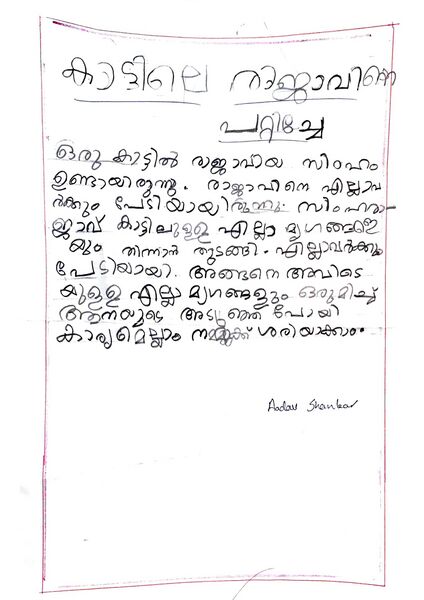 കാട്ടിലെ രാജാവിനെ
പറ്റിച്ചേ
ഒരു കാട്ടിൽ രാജാവായ സിംഹം
ഉണ്ടായിരുന്നു. രാജാവിനെ എല്ലാവ
ർക്കും പേടിയായിരുന്നു. സിംഹരാ-
ജാവ് കാട്ടിലുള്ള എല്ലാ മൃഗങ്ങളെ
യും തിന്നാൻ തുടങ്ങി. എല്ലാവർക്കും
പേടിയായി. അങ്ങനെ അവിടെ
യുള്ള എല്ലാ മൃഗങ്ങളും ഒരുമിച്ച്
ആനയുടെ അടുത്തെത്ത് പോയി
കാര്യമെല്ലാം നമ്മുക്ക് ശരിയാക്കാം.
Aadav Shankar